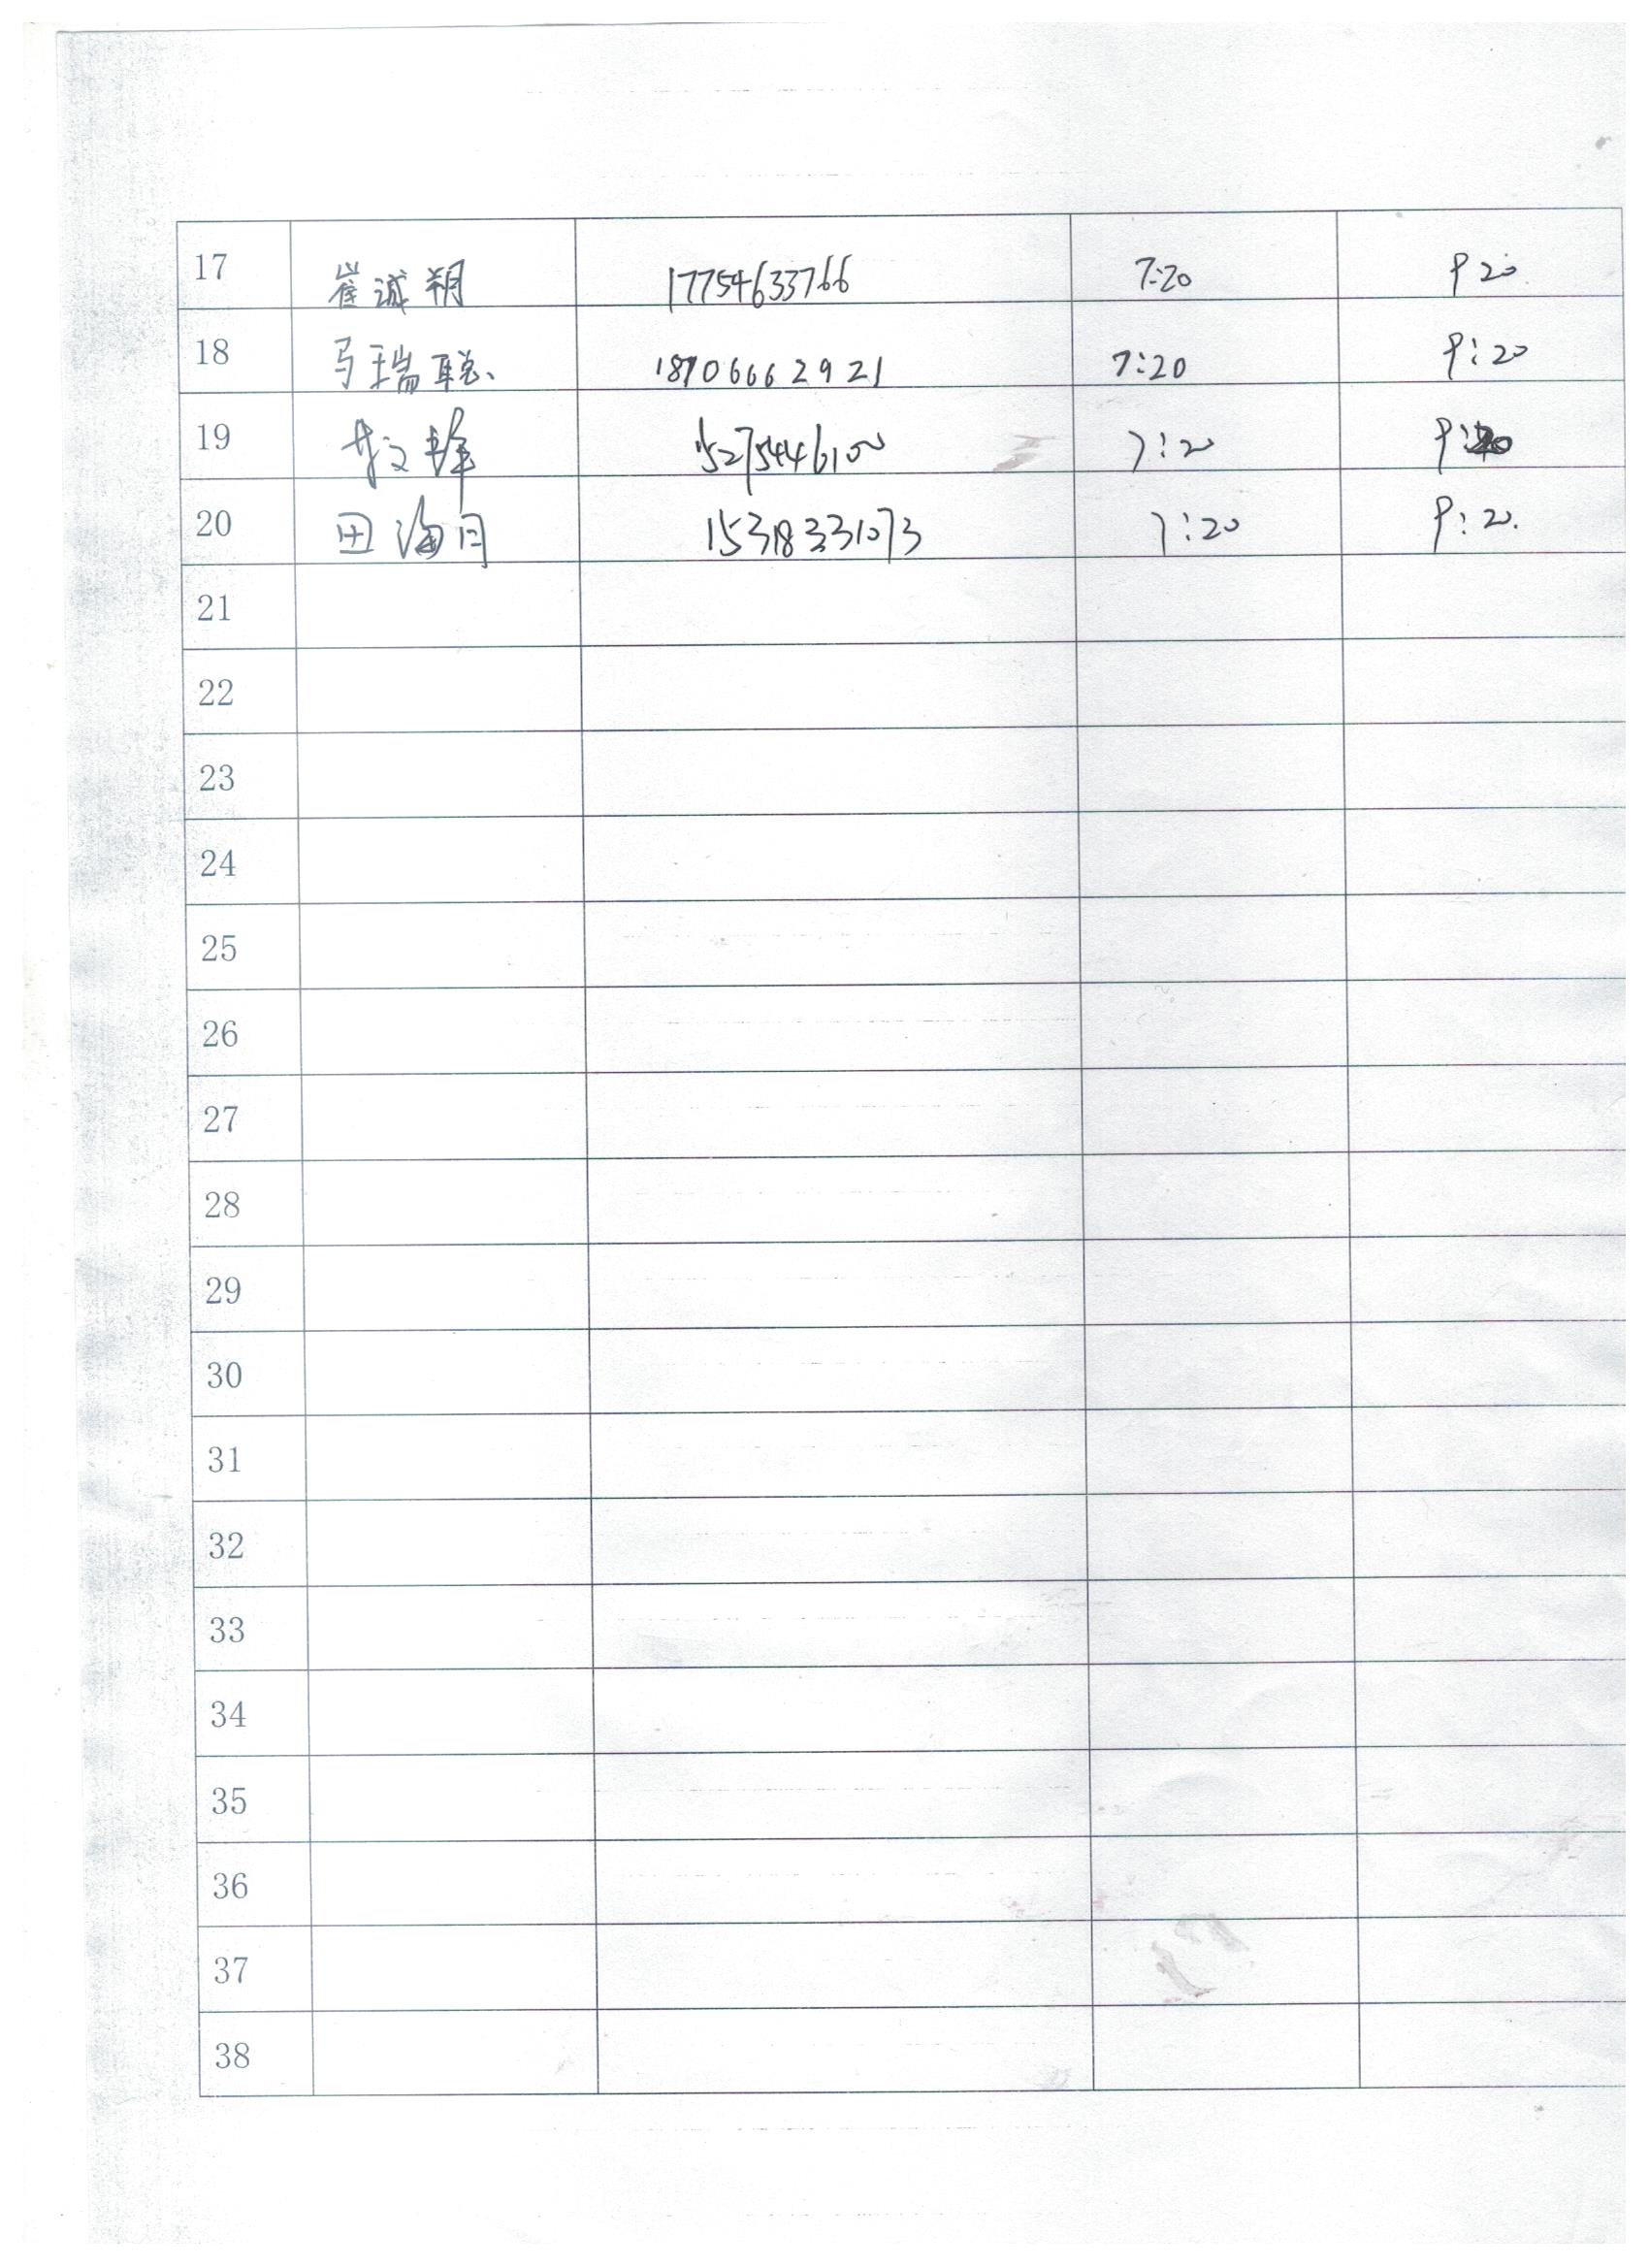 17 崔诚朔 17754633766 7:20 9 20
18 马瑞聪 18706662921 7:20 9:20
19 文锋 15275446100 7:20 9:20
20 田海月 15318331073 7:20 9:20.
21
22
23
24
25
26
27
28
29
30
31
32
33
34
35
36
37
38